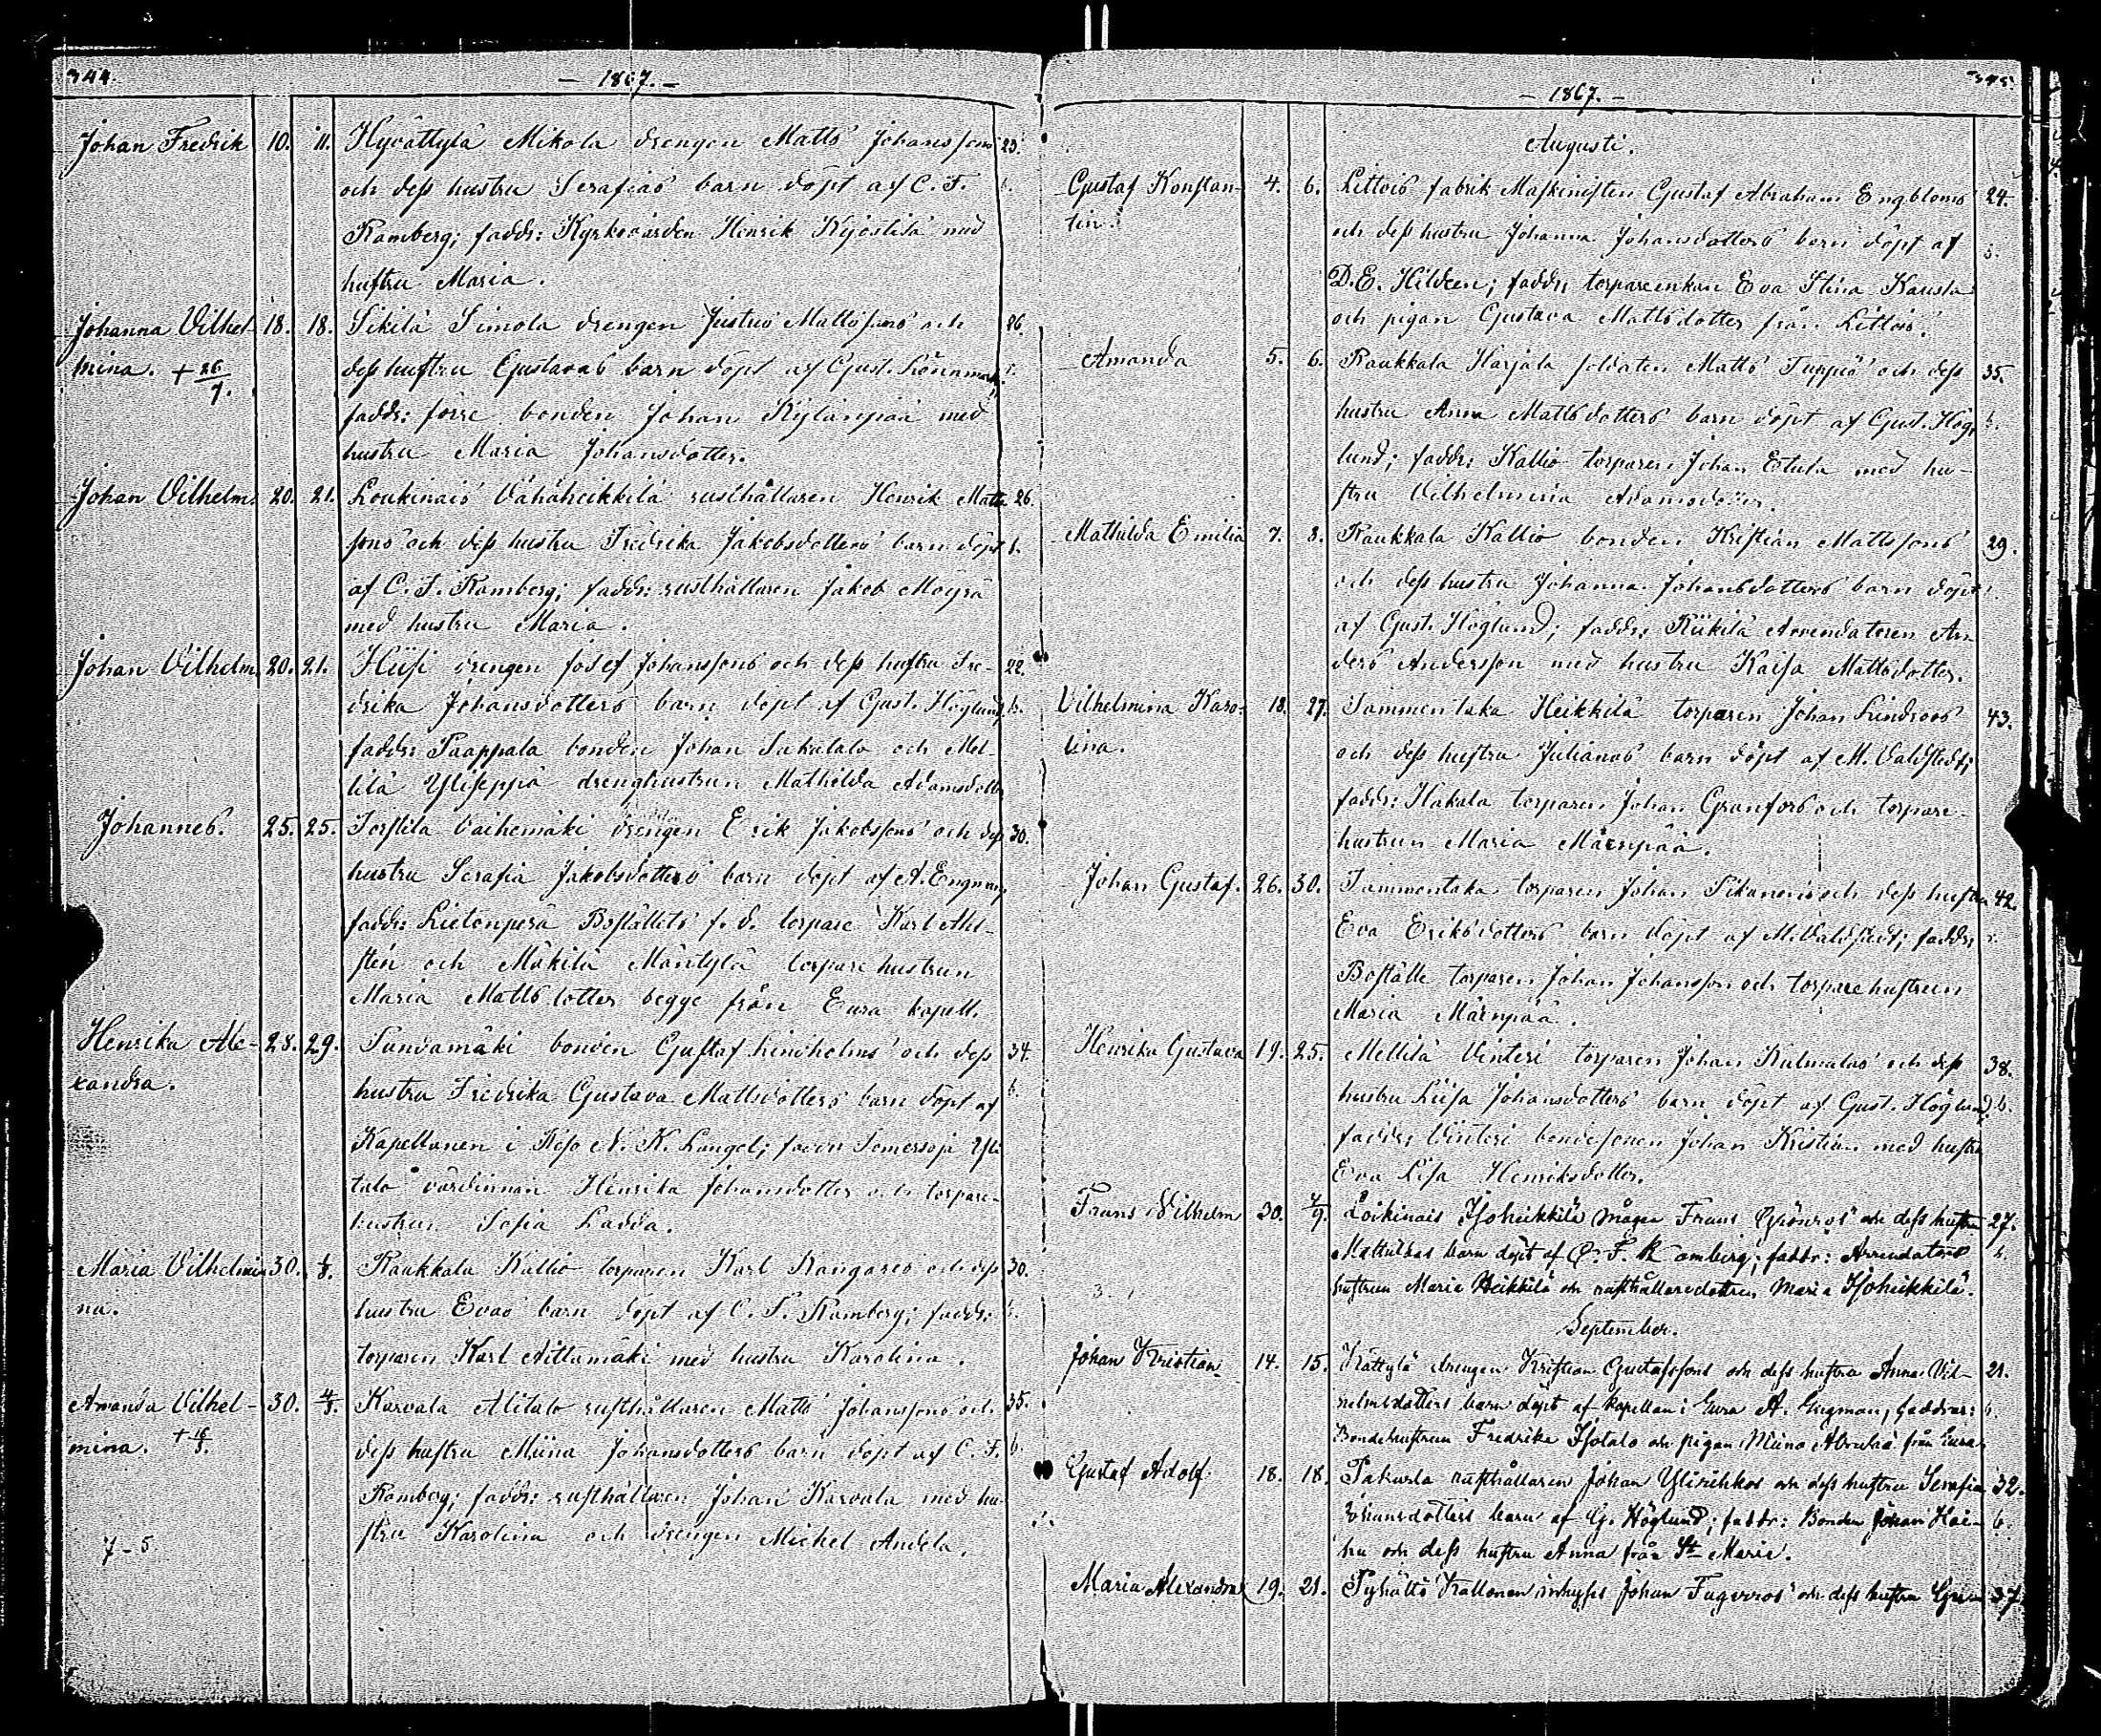 344.
— 1867. —
Johan Fredrik 10. 11. Hyvättylä Mikola drengen Matts Johanssons 23.
och dess hustru Serafias barn döpt af C. F. b.
Ramberg; faddr: Kyrkovärden Henrik Kjöstilä med
hustru Maria.
Johanna Vilhel- 18. 18. Sikilä Simola drengen Justus Mattssons och 26.
mina. + 26/7. dess hustru Gustavas barn döpt af Gust. Lönnmark;
faddr: förre bonden Johan Kylänpää med
hustru Maria Johansdotter.
Johan Vilhelm. 20. 21. Loukinais Vähäheikkilä rusthållaren Henrik Matts 26.
sons och dess hustru Fredrika Jakobsdotters barn döpt b.
af C. F. Ramberg; faddr: rusthållaren Jakob Mögrä
med hustru Maria.
Johan Vilhelm. 20. 21. Hiisi drengen Josef Johanssons och dess hustru Fre- 22.
drika Johansdotters barn döpt af Gust. Höglund, b.
faddr: Paappala bonden Johan Sukulalo och Mel
lilä Yliseppä drenghustrun Mathilda Adamsdotter
Johannes. 25. 25. Torstila Vaihemäki drengen Erik Jakobssons och dess 30.
hustru Serafia Jakobsdotters barn döpt af A. Engman;
faddr: Lietonperä Boställets f. d. torpare Karl Ahl-
stén och Mäkilä Mäntylä torparehustrun
Maria Mattsdotter begge från Eura kapell.
Henrika Ale- 28. 29. Sundamäki bonden Gustaf Lindholms och dess 34.
xandra. hustru Fredrika Gustava Mattsdotters barn döpt af b.
Kapellanen i Kjso N. K. Langel; faddr Somersoja Yli
talo värdinnan Henrika Johansdotter och torpare-
hustrun Sofia Ladda.
Maria Vilhelmi- 30. 1/8. Raukkala Kallio torparen Karl Kangares och dess 30.
na. hustru Evas barn döpt af C. F. Ramberg; faddr: b.
torparen Karl Aittamäki med hustru Karolina.
Amanda Vilhel- 30. 4/8. Karvala Alitalo rusthållaren Matts Johanssons och 35.
mina. + 16/8. dess hustru Miina Johansdotters barn döpt af C. F. b.
Ramberg; faddr: rusthållaren Johan Karvala med hu-
stru Karolina och drengen Michel Andela.
7-5
345.
— 1867. —
Augusti.
Gustaf Konstan- 4. 6. Littois fabrik Maskinisten Gustaf Abraham Engbloms 24.
tin. och dess hustru Johanna Johansdotters barn döpt af b.
D. E. Hildeen; faddr, torpareenkan Eva Stina Kausla
och pigan Gustava Mattsdotter från Littois.
Amanda 5. 6. Raukkala Harjala soldaten Matts Tuppis och dess 35.
hustru Anna Mattsdotters barn döpt af Gust. Hög- b.
lund; faddr: Kallio torparen Johan Estula med hu-
stru Vilhelmina Adamsdotter.
Mathilda Emilia 7. 8. Raukkala Kallio bonden Kristian Mattssons 29.
och dess hustru Johanna Johansdotters barn döpt b.
af Gust. Höglund; faddr: Riikilä Arrendatoren An
ders Andersson med hustru Kaisa Mattsdotter.
Vilhelmina Karo- 18. 27. Tammentaka Heikkilä torparen Johan Lindroos 43.
lina. och dess hustru Julianas barn döpt af M. Valdstedt;
faddr: Hakala torparen Johan Granfors och torpare-
hustrun Maria Märnpää.
Johan Gustaf. 26. 30. Tammentaka torparen Johan Sikanens och dess hustru 42.
Eva Eriksdotters barn döpt af M. Valdstedt; faddr,
Boställe torparen Johan Johansson och torparehustrun
Maria Märnpää.
Henrika Gustava 19. 25. Mellilä Vinteri torparen Johan Kulmalas och dess 38.
hustru Liisa Johansdotters barn döpt af Gust. Höglund, b.
faddr, Vinteri bondesonen Johan Kristian med hustru
Eva Lisa Henriksdotter.
Frans Vilhelm 30. 4/9. Loikinais Isoheikkilä mågen Frans Grönros och dess hustru 27.
Mathildas barn döpt af C. F. Ramberg; faddr: Arrendators b.
hustrun Maria Heikkilä och rusthållaredottren Maria Isoheikkilä.
September.
Johan Kristian 14. 15. Kättylä drengen Kristian Gustafssons och dess hustru Anna Vil- 21.
helmsdotters barn döpt af kapellan i Eura A. Engman, faddrar: b.
Bondehustrun Fredrika Isotalo och pigan Miina från Eura.
Gustaf Adolf. 18. 18. Pakurla rusthållaren Johan Ylirihkos och dess hustru Serafia 32.
Johansdotters barn af G. Höglund; faddr: Bonden Johan Hai- b.
hu och dess hustru Anna från St. Marie.
Maria Alexandra 19. 21. Pyhältö Krallonen inhyses Johan Fagerros och dess hustru 37